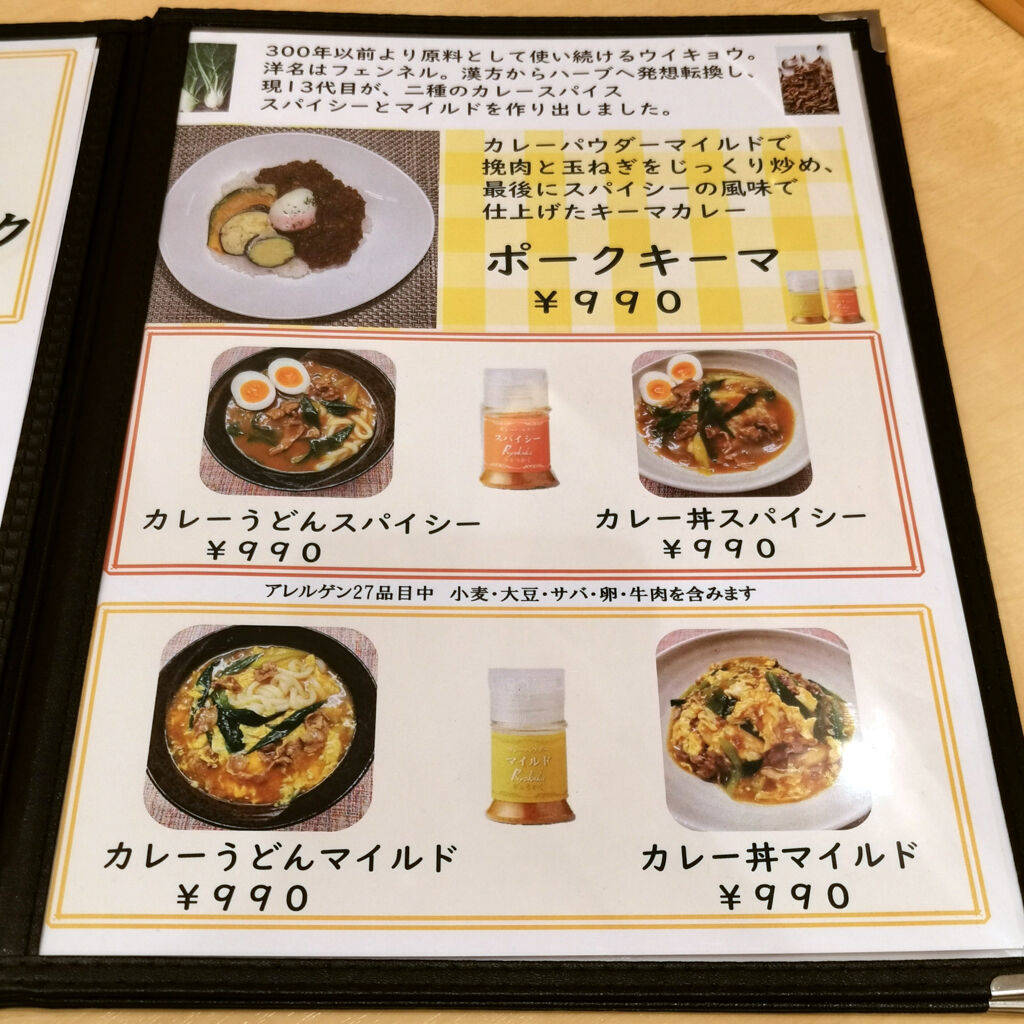 300年以前より原料として使い続けるウイキョウ。
洋名はフェンネル。漢方からハーブへ発想転換し、
現13代目が、二種のカレースパイス
スパイシーとマイルドを作り出しました。
カレーパウダーマイルドで
挽肉と玉ねぎをじっくり炒め、
最後にスパイシーの風味で
仕上げたキーマカレー
ポークキーマ
￥990
ク
スパイシー
カレーうどんスパイシー
￥990
カレー丼スパイシー
￥990
アレルゲン27品目中 小麦・大豆・サバ・卵・牛肉を含みます
マイルド
カレーうどんマイルド
￥990
カレー丼マイルド
￥990